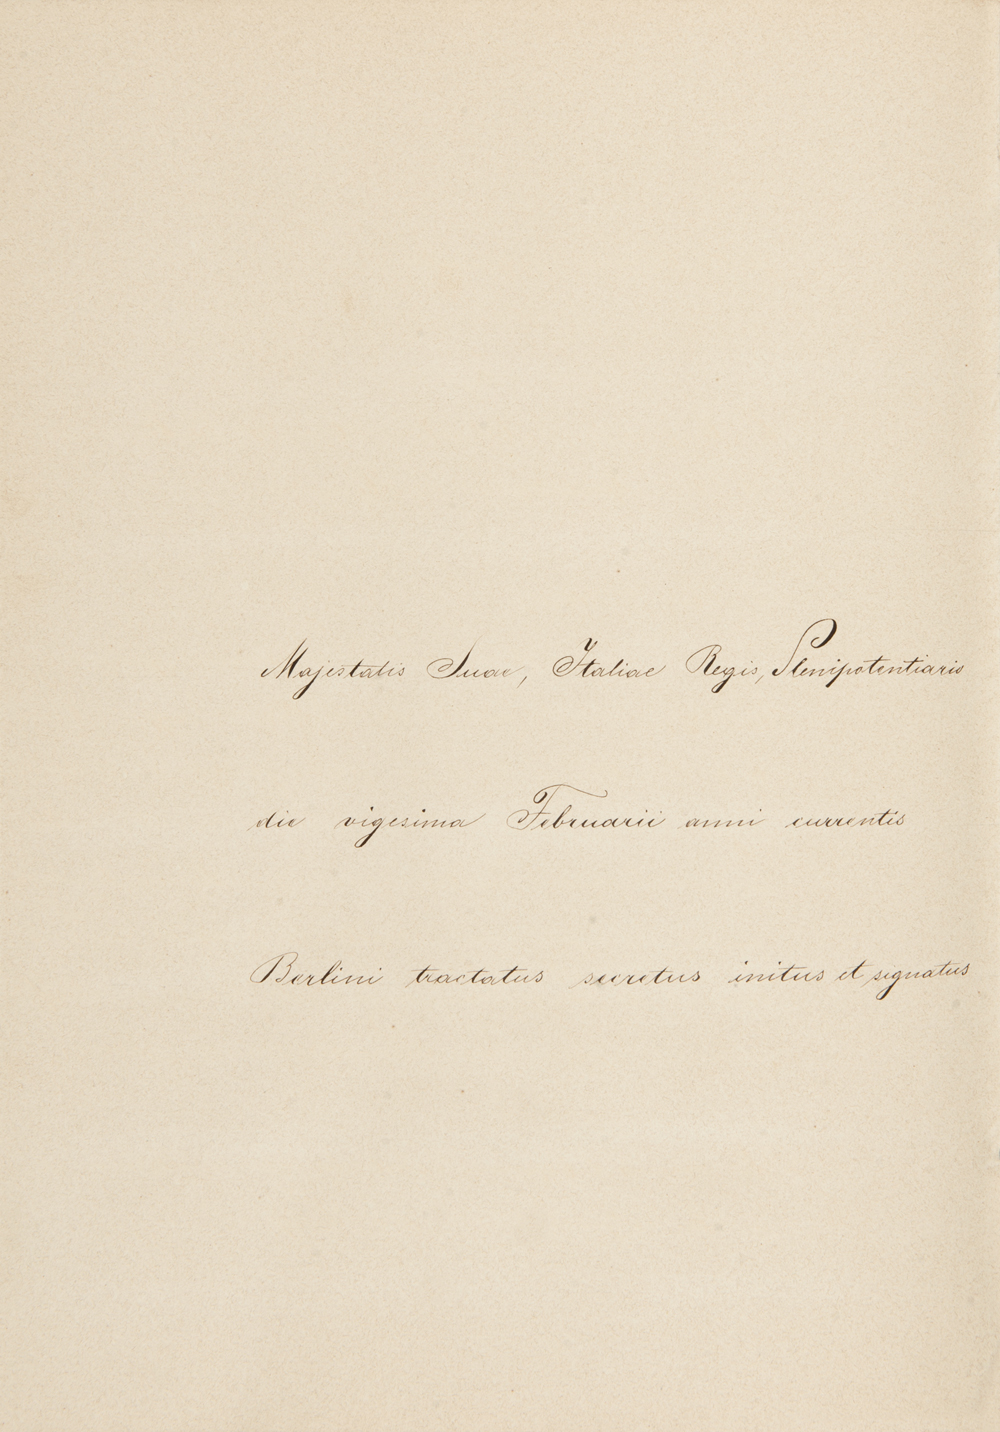 Majestatis Suae, Italiae Regis, Plenipotentiaris
die vigesima Februarii anni currentis
Berlini tractatus secretus initus et signatus